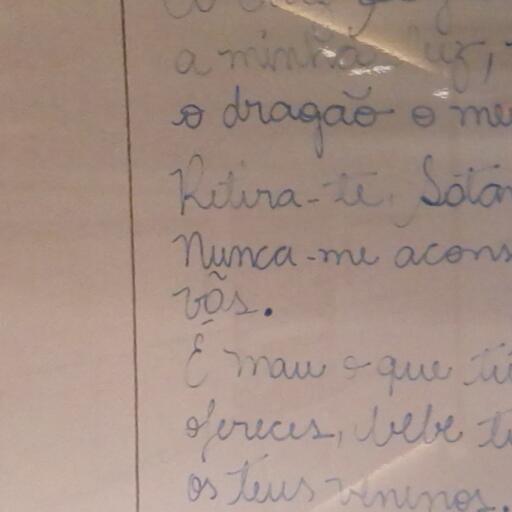 a minha luz,
o dragão o me
Retira-te, Sátan
Nunca-me acons
vãs.
É mau o que tu
ofereces, bebe t
os teus venenos.